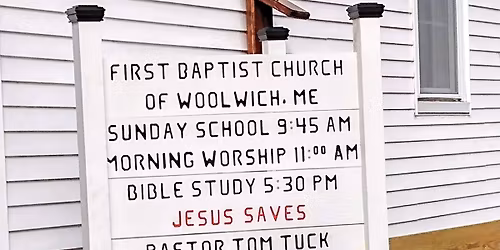 FIRST BAPTIST CHURCH
OF WOOLWICH. ME
SUNDAY SCHOOL 9:45 AM
MORNING WORSHIP 11:00 AM
BIBLE STUDY 5:30 PM
JESUS SAVES
PASTOR TOM TUCK